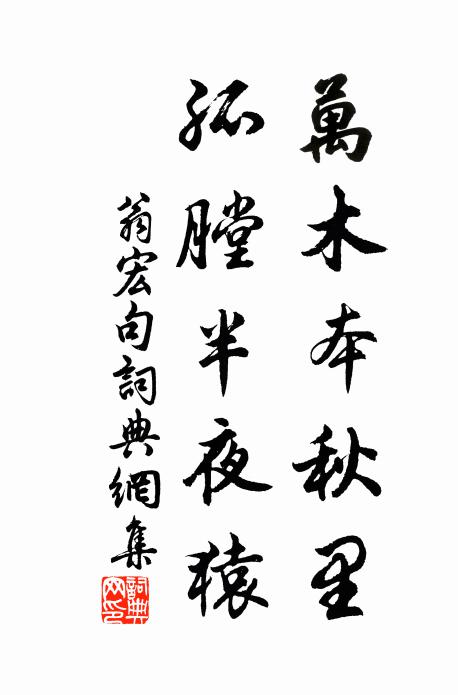 萬木本秋里
孤膛半夜猿
翁宏句詞典網集
詞典
网印